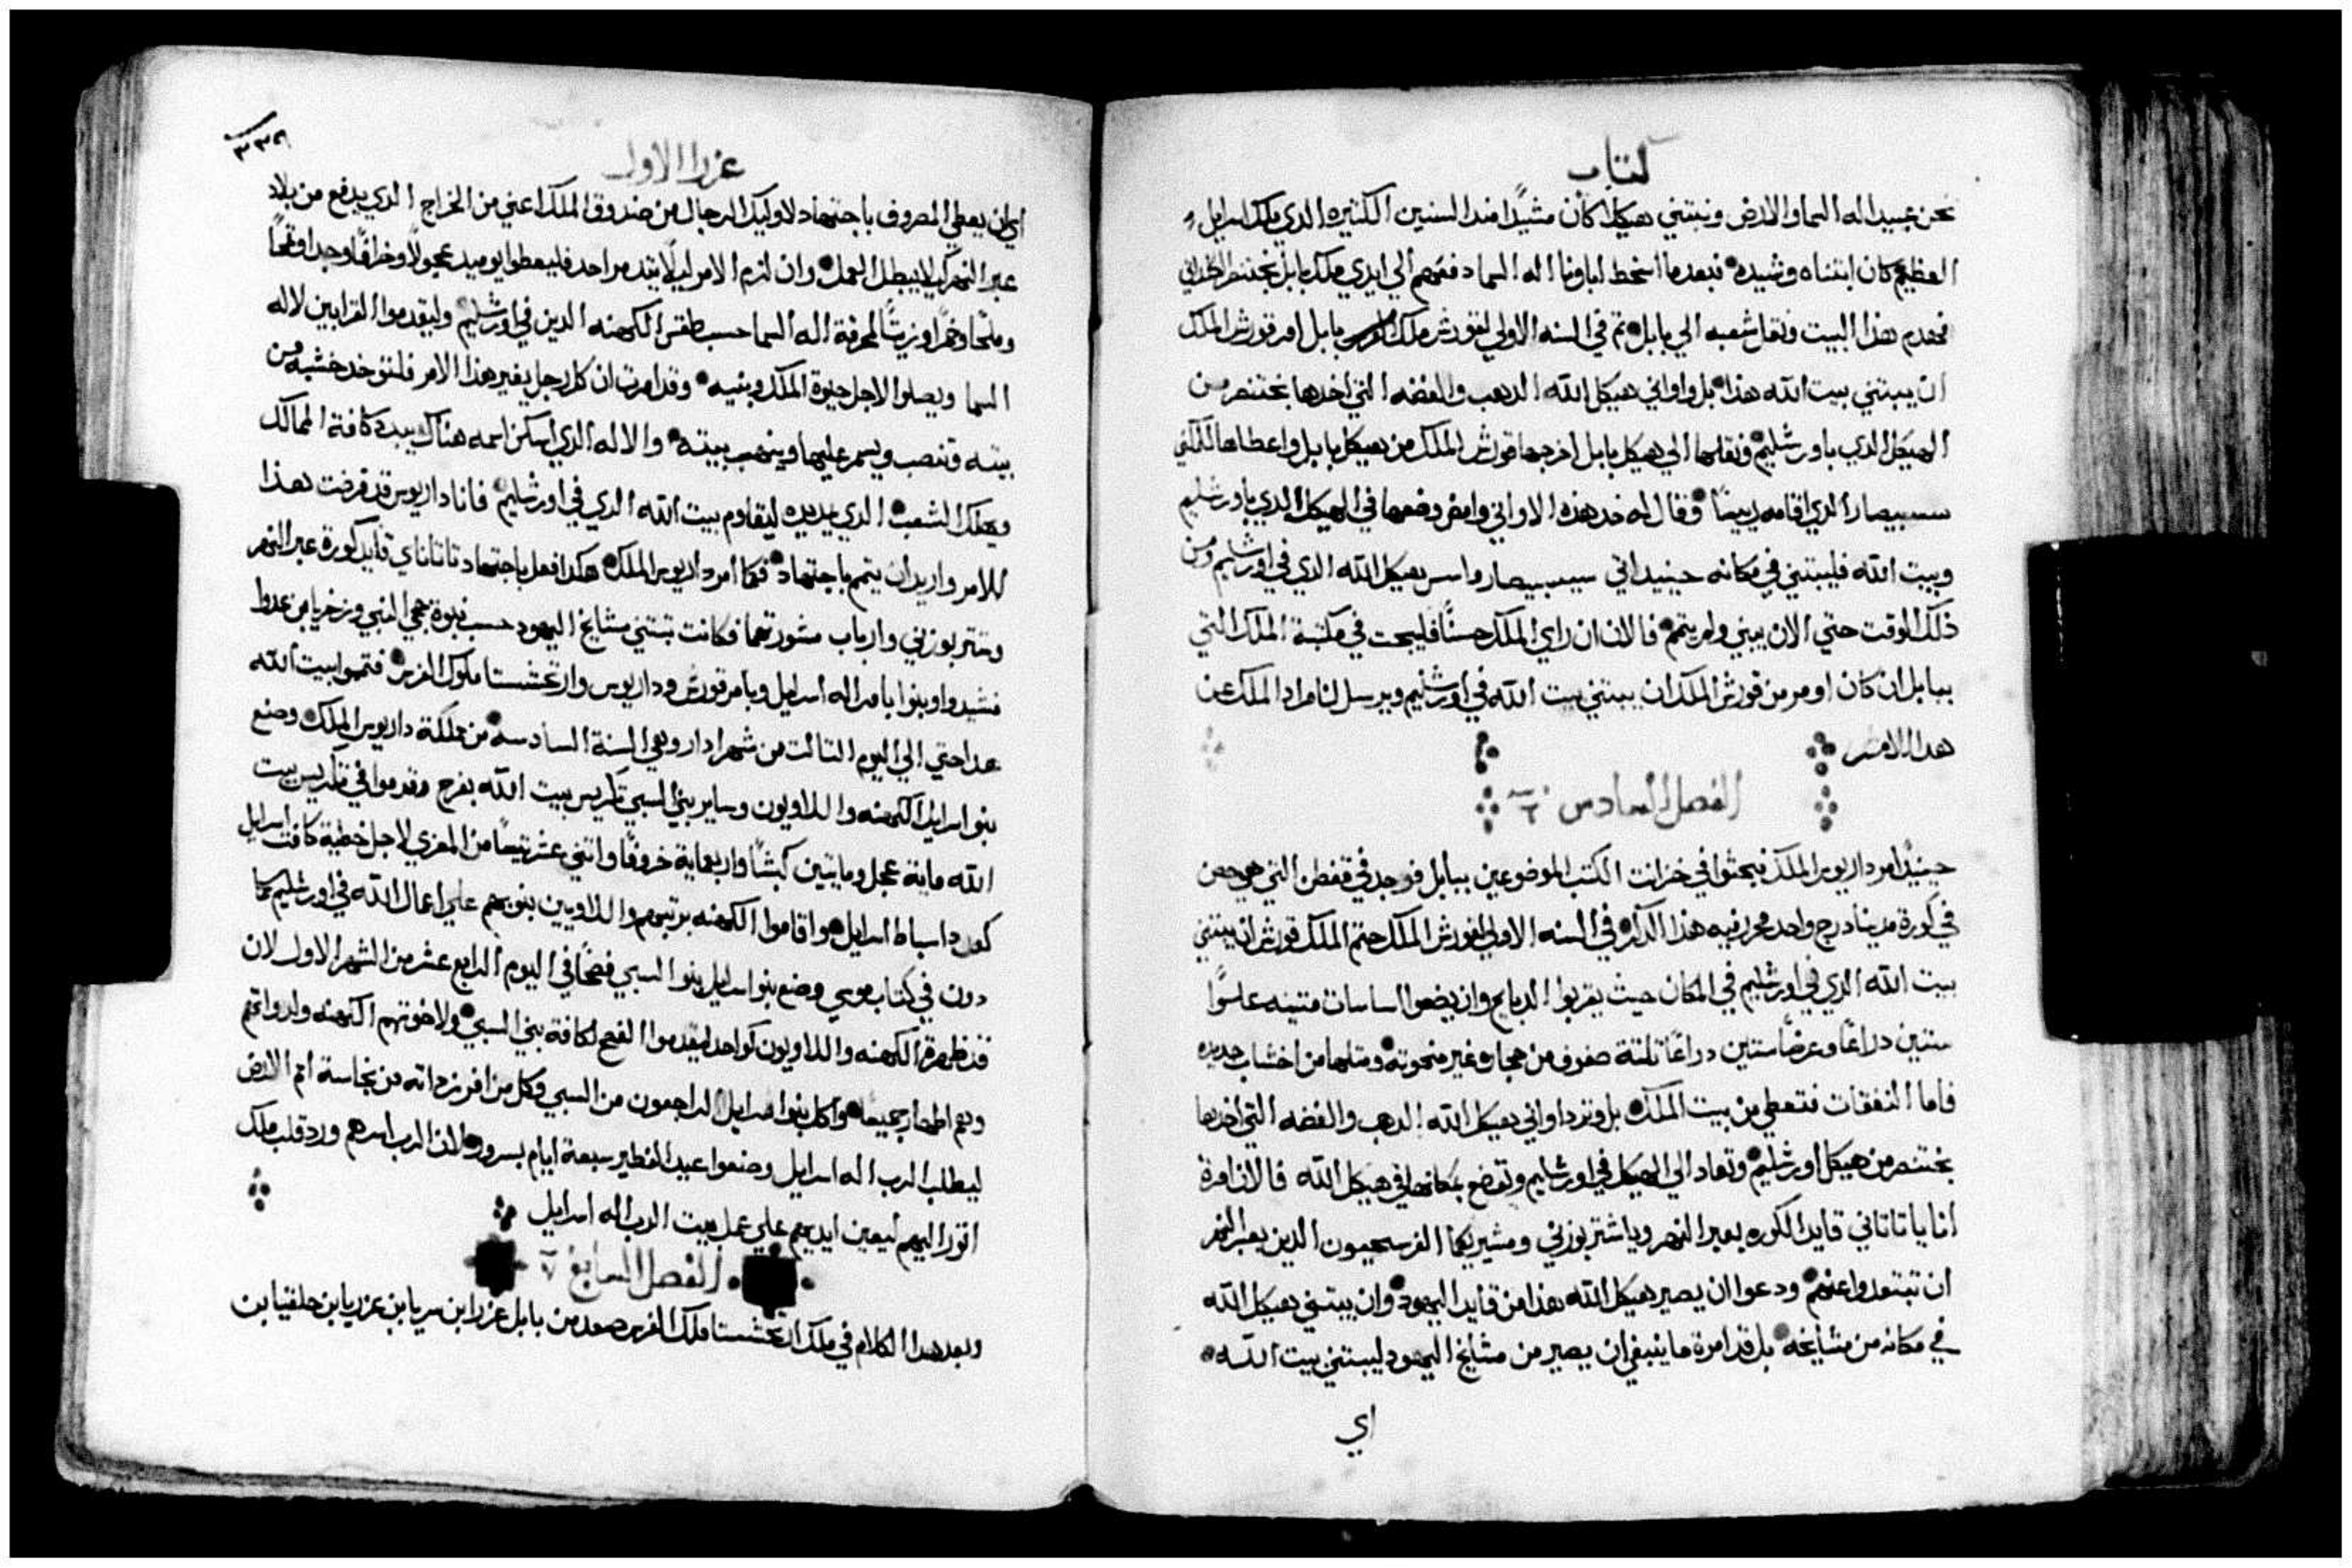 كتاب
نحن عبيد اله السما والارض ونبتني هيكلا كان مشيدا مند السنين الكتيره الدي ملك اسرايل
العظيم كان ابتناه وشيده فبعدما اسخط اباونا اله السما دفعهم الي ايدي ملك بابل بختنصر الكلداني
فهدم هذا البيت ونقل شعبه الي بابل تم في السنه الاولي لقورش ملك بابل امر قورش الملك
ان يبتني بيت الله هذا بل واواني هيكل الله الدهب والفضه التي اخدها بختنصر من
الهيكل الدي باورشليم ونقلها الي هيكل بابل اخرجها قورش الملك من هيكل بابل واعطاها للدي
سسبيصار الدي اقامه رييسا وقال له خد هذه الاواني وامض وضعها في الهيكل الدي باورشليم
وبيت الله فليبتني في مكانه حينيد اتي سيسبيصار واسس هيكل الله الدي في اورشليم ومن
ذلك الوقت حتي الان يبني ولم يتمم فالان ان راي الملك حسنا فليبحت في مكتبة الملك التي
ببابل ان كان اومر من قورش الملك ان يبتني بيت الله في اورشليم ويرسل لنا مراد الملك عن
هدا الامر
الفصل السادس ٦
حينيدا امر داريوس الملك فبحثوا في خزانت الكتب الموضوعين ببابل فوجد في قفطن التي هي حصن
في كورة مدينا درج واحد محرر فيه هذا الدكر في السنه الاولي لقورش الملك حتم الملك قورش ان يبتني
بيت الله الدي في اورشليم في المكان حيث يقربوا الدبايح وان يضعوا اساسات متينه علوا
ستين دراعا وعرضا ستين دراعا تلتة صفوف من حجاره غير منحوته ومتلها من اخشاب جديده
فاما النفقات فتعطي من بيت الملك بل وترد اواني هيكل الله الدهب والفضه التي اخدها
بختنصر من هيكل اورشليم وتعاد الي الهيكل في اورشليم وتوضع بمكانها في هيكل الله فالان امرة
انا يا تاتاني قايد الكوره بعبر النهر ويا شتربوزني ومشيريكما الفرسحيون الدين بعبر النهر
ان تبتعدوا عنهم ودعوا ان يصير هيكل الله هذا من قايد اليهود وان يبتني هيكل الله
في مكانه من مشايخه بل قد امرة ما ينبغي ان يصير من مشايخ اليهود ليبتني بيت الله
اي
٣٣٤
عزرا الاول
اي ان يعطي المصروف باجتهاد لاوليك الرجال من صندوق الملك اعني من الخراج الدي يدفع من بلاد
عبر النهر كيلا يبطل العمل وان لزم الامر ليلا يتدمر احد فليعطوا يوميد عجولا وخرافا وجدا وقمحا
وملحا وخمرا وزيتا لمحرقة اله السما حسب طقس الكهنه الدين في اورشليم وليقدموا القرابين لاله
السما ويصلوا لاجل حيوة الملك وبنيه وقد امرت ان كل رجل يغير هذا الامر فلتوخد خشبه من
بيته وتنصب ويسمر عليها وينهب بيته والاله الدي اسكن اسمه هناك يبدد كافة الممالك
ويهلك الشعب الدي يمد يده ليقاوم بيت الله الدي في اورشليم فانا داريوس قد فرضت هذا
للامر واريد ان يتمم باجتهاد فكما امر داريوس الملك هكدا فعل باجتهاد تاتاناي قايد كورة عبر النهر
وشتربوزني وارباب مشورتهما فكانت تبتني مشايخ اليهود حسب نبوة حجي النبي وزخريا بن عدوا
فشيدوا وبنوا بامر اله اسرايل وبامر قورش وداريوس وارتحشستا ملوك الفرس فتمموا بيت الله
هدا حتي الي اليوم التالت من شهر ادار وهي السنة السادسه من مملكة داريوس الملك وصنع
بنو اسرايل الكهنه واللاويون وساير بني السبي تكريس بيت الله بفرح وقدموا في تكريس بيت
الله ماية عجل ومايتين كبشا واربعماية خروفا واتني عشر تيسا من المعزي لاجل خطية كافت اسرايل
كعدد اسباط اسرايل واقاموا الكهنه برتبهم واللاويين بنوبهم علي اعمال الله في اورشليم كما
دون في كتاب موسي وصنع بنو اسرايل بنوا السبي فصحا في اليوم الرابع عشر من الشهر الاول لان
قد تطهرة الكهنه واللاويون كواحد ليقدموا الفصح لكافة بني السبي ولاخوتهم الكهنه ولدواتهم
وهم اطهار جميعا واكل بنوا اسرايل الراجعون من السبي وكل من افرز داته من نجاسة امم الارض
ليطلب الرب اله اسرايل وصنعوا عيد الفطير سبعة ايام بسرور لان الرب اسرهم ورد قلب ملك
اتور اليهم ليعين ايديهم علي عمل بيت الرب اله اسرايل
الفصل السابع ٧
وبعد هدا الكلام في ملك ارتحشستا ملك الفرس صعد من بابل عزرا ابن سريا بن عزريا بن حلقيا بن